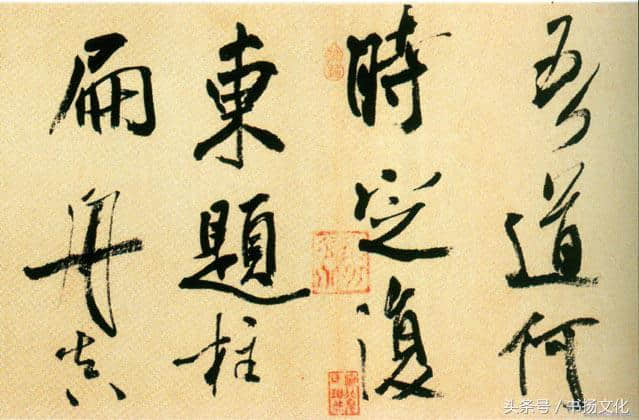 吾道何
時定復
東題柱
扁舟真
头条号/书扬文化